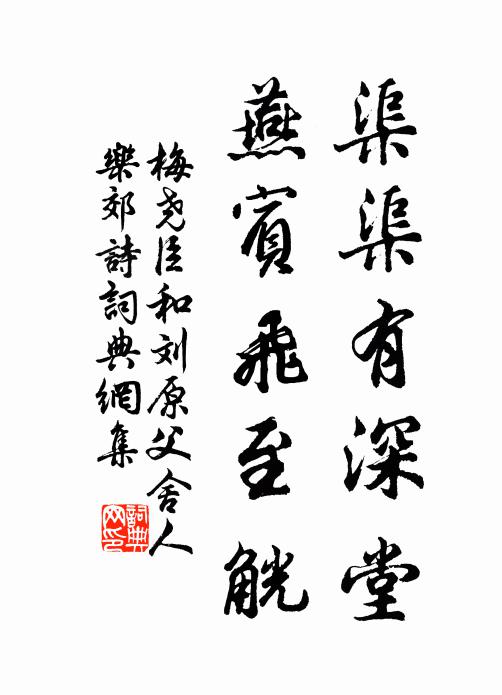 渠渠有深堂
燕賓飛至觥
梅尧臣和刘原父舍人
樂郊詩詞典網集
詞典
网印